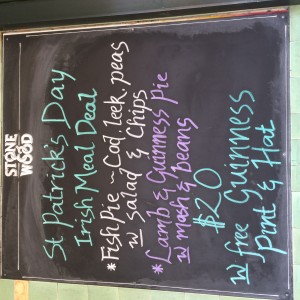 STONE
& WOOD
St Patrick's Day
Irish Meal Deal
*Fish Pie ~ Cod, leek, peas
w salad & Chips
*Lamb & Guinness Pie
w mash & beans
$20
w free Guinness
Pint & Hat